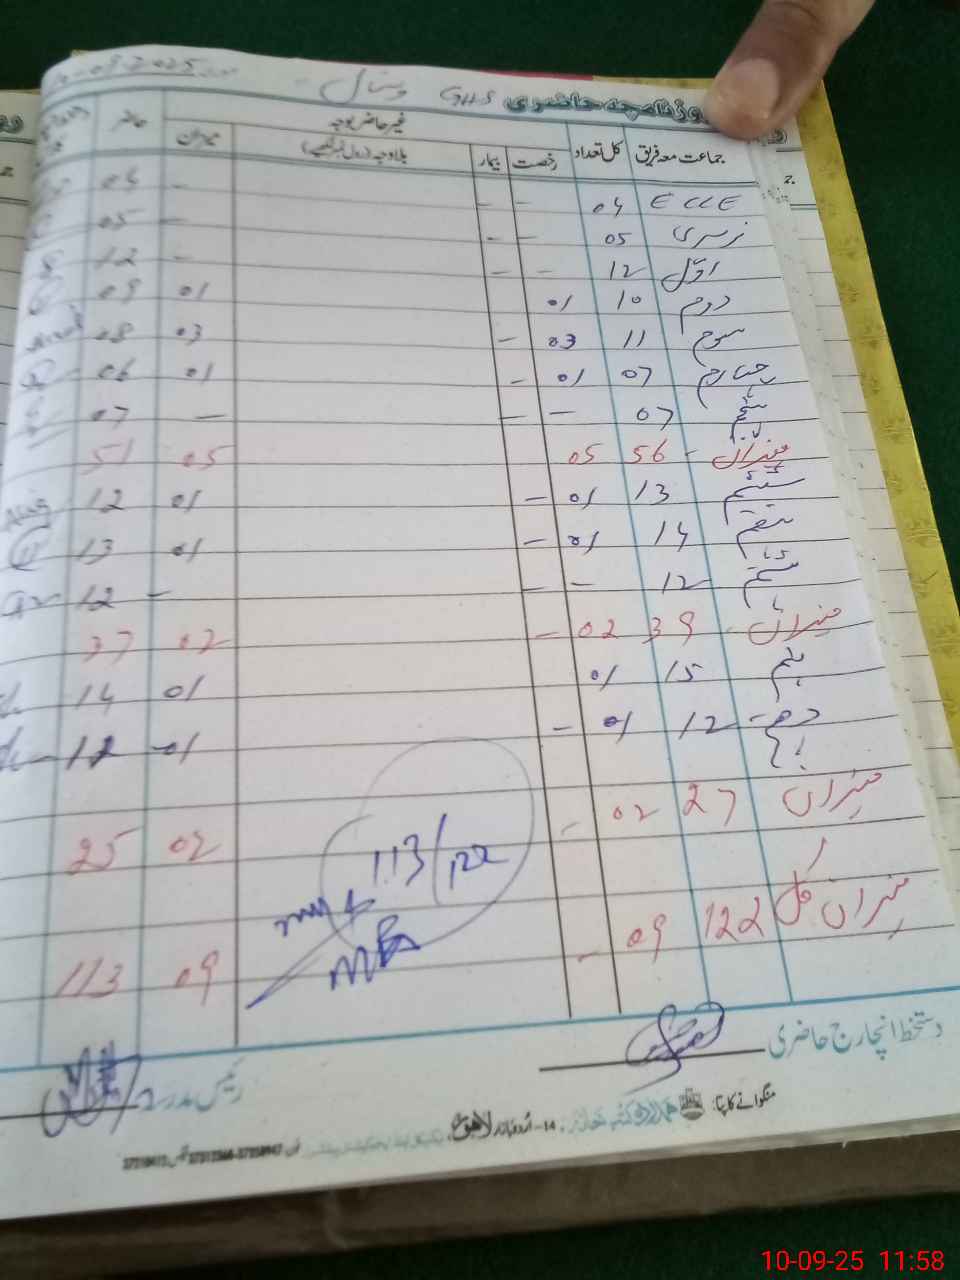 روزنامچہ حاضری GHS
جماعت معہ فریق کل تعداد رخصت بیمار غیر حاضر بوجہ بلاوجہ میزان حاضر
ECCE 04 - - - 04
نرسری 05 - - - 05
اول 12 - - - 12
دوم 10 01 01 09
سوم 11 03 - 03 08
چہارم 07 01 - 01 06
پنجم 07 - - - 07
میزان 56 05 05 51
ششم 13 01 - 01 12
ہفتم 14 01 - 01 13
ہشتم 12 - - - 12
میزان 39 02 - 02 37
نہم 15 01 01 14
دہم 12 01 - 01
میزان 27 02 - 02 25
113/122
میزان کل 122 09 - 09 113
دستخط انچارج حاضری
رئیس مدرسہ
منگوانے کا پتا: ہمدرد کتب خانہ، 14-اردو بازار لاہور
10-09-25 11:58